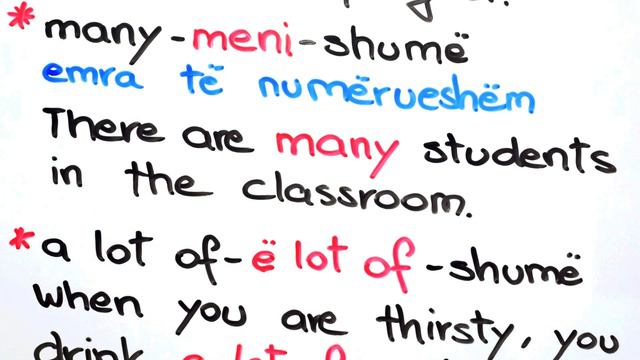 * many - meni - shumë
emra të numërueshëm
There are many students
in the classroom.
* a lot of - ë lot of - shumë
when you are thirsty, you
drink a lot